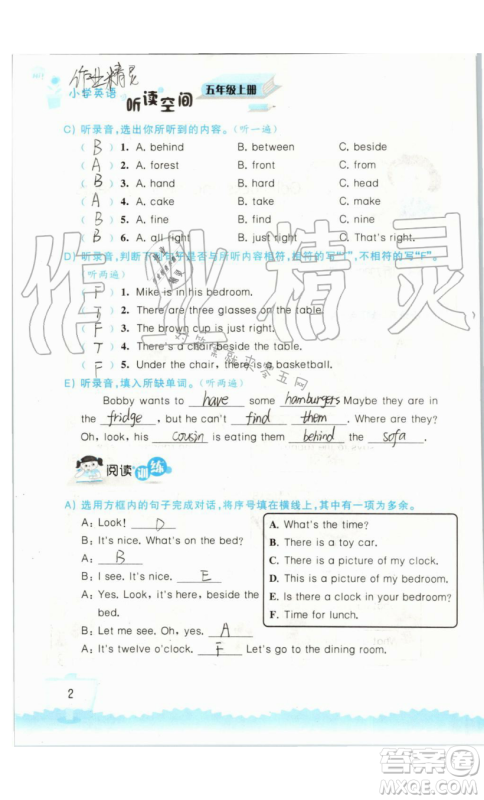 作业精灵
小学英语
听读空间
五年级上册
C) 听录音,选出你所听到的内容。(听一遍)
( B ) 1. A. behind B. between C. beside
( A ) 2. A. forest B. front C. from
( B ) 3. A. hand B. hard C. have
( A ) 4. A. cake B. take C. make
( B ) 5. A. fine B. find C. five
( B ) 6. A. all right B. just right C. That's right.
D) 听录音,判断下列句子是否与所听内容相符,相符的写“T”,不相符的写“F”。
(听两遍)
( F ) 1. Mike is in his bedroom.
( T ) 2. There are three glasses on the table.
( F ) 3. The brown cup is just right.
( T ) 4. There's a chair beside the table.
( F ) 5. Under the chair, there is a basketball.
E) 听录音,填入所缺单词。(听两遍)
Bobby wants to have some hamburgers Maybe they are in
the fridge, but he can't find them. Where are they?
Oh, look, his cousin is eating them behind the sofa.
阅读训练
A) 选用方框内的句子完成对话,将序号填在横线上,其中有一项为多余。
A: Look! D
B: It's nice. What's on the bed?
A: B
B: I see. It's nice. E
A: Yes. Look. It's here, beside the
bed.
B: Let me see. Oh, yes. A
A: It's twelve o'clock. F Let's go to the dining room.
A. What's the time?
B. There is a toy car.
C. This is a picture of my clock.
D. This is a picture of my bedroom.
E. Is there a clock in your bedroom?
F. Time for lunch.
2
作业精灵
答案圈